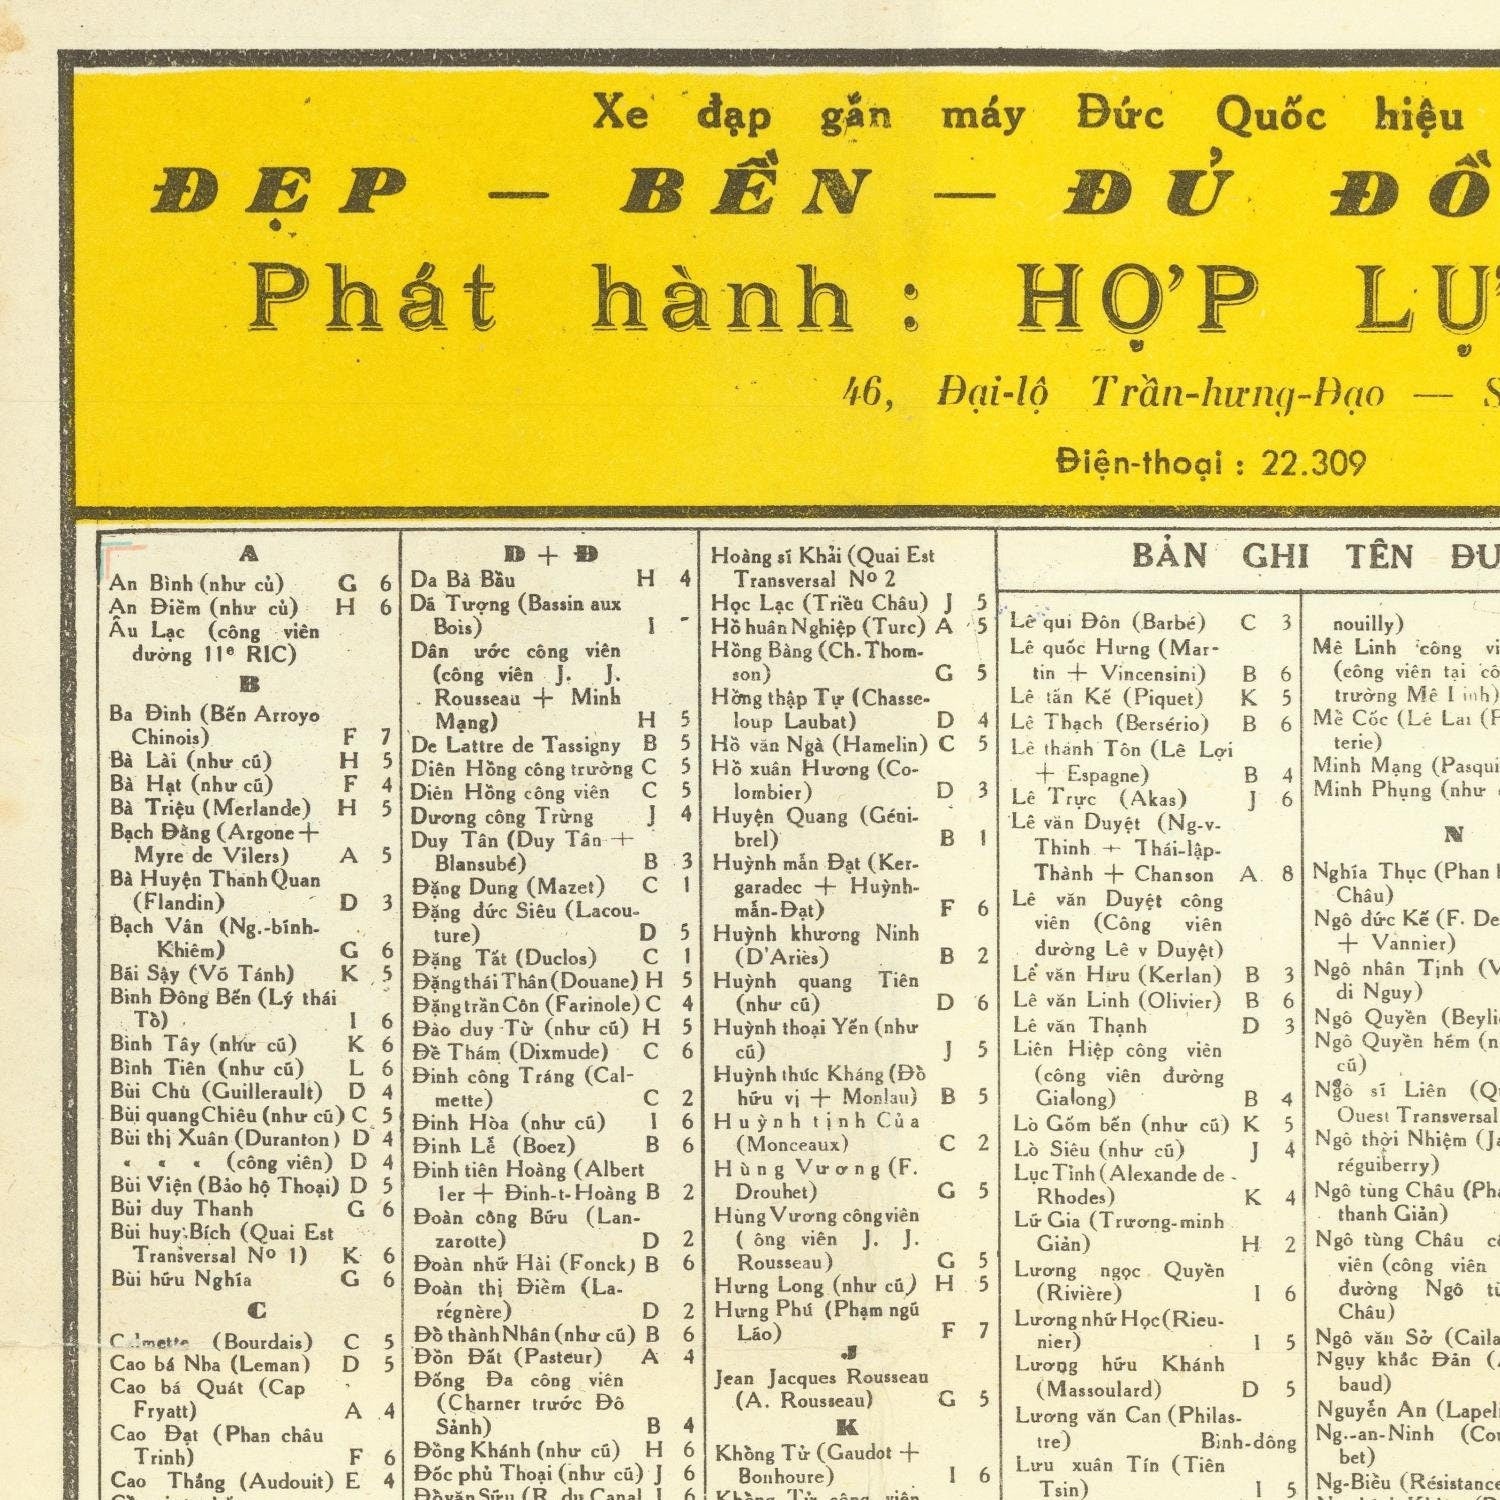 Xe đạp gắn máy Đức Quốc hiệu
ĐẸP — BỀN — ĐỦ ĐỒ
Phát hành : HỢP LỰ
46, Đại-lộ Trần-hưng-Đạo — S
Điện-thoại : 22.309
A
An Bình (như củ) G 6
An Điềm (như củ) H 6
Âu Lạc (công viên
dường 11e RIC)
B
Ba Đình (Bến Arroyo
Chinois) F 7
Bà Lài (như cũ) H 5
Bà Hạt (như cũ) F 4
Bà Triệu (Merlande) H 5
Bạch Đằng (Argone +
Myre de Vilers) A 5
Bà Huyện Thanh Quan
(Flandin) D 3
Bạch Vân (Ng.-bỉnh-
Khiêm) G 6
Bãi Sậy (Võ Tánh) K 5
Bình Đông Bến (Lý thái
Tổ) I 6
Bình Tây (như cũ) K 6
Bình Tiên (như cũ) L 6
Bùi Chu (Guillerault) D 4
Bùi quang Chiêu (như cũ) C 5
Bùi thị Xuân (Duranton) D 4
« « « (công viên) D 4
Bùi Viện (Bảo hộ Thoại) D 5
Bùi duy Thanh G 6
Bùi huy Bích (Quai Est
Transversal Nº 1) K 6
Bùi hữu Nghĩa G 6
C
Calmette (Bourdais) C 5
Cao bá Nha (Leman) D 5
Cao bá Quát (Cap
Fryatt) A 4
Cao Đạt (Phan châu
Trinh) F 6
Cao Thắng (Audouit) E 4
D + Đ
Da Bà Bầu H 4
Dã Tượng (Bassin aux
Bois) I
Dân ước công viên
(công viên J. J.
Rousseau + Minh
Mạng) H 5
De Lattre de Tassigny B 5
Diên Hồng công trường C 5
Diên Hồng công viên C 5
Dương công Trừng J 4
Duy Tân (Duy Tân +
Blansubé) B 3
Đặng Dung (Mazet) C 1
Đặng đức Siêu (Lacou-
ture) D 5
Đặng Tất (Duclos) C 1
Đặng thái Thân (Douane) H 5
Đặng trần Côn (Farinole) C 4
Đào duy Từ (như cũ) H 5
Đề Thám (Dixmude) C 6
Đinh công Tráng (Cal-
mette) C 2
Đinh Hòa (như cũ) I 6
Đinh Lễ (Boez) B 6
Đinh tiên Hoàng (Albert
1er + Đinh-t-Hoàng B 2
Đoàn công Bửu (Lan-
zarotte) D 2
Đoàn nhữ Hài (Fonck) B 6
Đoàn thị Điểm (La-
régnère) D 2
Đồ thành Nhân (như cũ) B 6
Đồn Đất (Pasteur) A 4
Đống Đa công viên
(Charner trước Đô
Sảnh) B 4
Đồng Khánh (như cũ) H 6
Đốc phủ Thoại (như cũ) J 6
Đỗ văn Sửu (R. du Canal I 6
Hoàng sĩ Khải (Quai Est
Transversal Nº 2
Học Lạc (Triều Châu) J 5
Hồ huân Nghiệp (Turc) A 5
Hồng Bàng (Ch. Thom-
son) G 5
Hồng thập Tự (Chasse-
loup Laubat) D 4
Hồ văn Ngà (Hamelin) C 5
Hồ xuân Hương (Co-
lombier) D 3
Huyện Quang (Géni-
brel) B 1
Huỳnh mẫn Đạt (Ker-
garadec + Huỳnh-
mẫn-Đạt) F 6
Huỳnh khương Ninh
(D'Ariès) B 2
Huỳnh quang Tiên
(như cũ) D 6
Huỳnh thoại Yến (như
cũ) J 5
Huỳnh thúc Kháng (Đỗ
hữu vị + Monlau) B 5
Huỳnh tịnh Của
(Monceaux) C 2
Hùng Vương (F.
Drouhet) G 5
Hùng Vương công viên
( ông viên J. J.
Rousseau) G 5
Hưng Long (như cũ) H 5
Hưng Phú (Phạm ngũ
Lão) F 7
J
Jean Jacques Rousseau
(A. Rousseau) G 5
K
Khổng Tử (Gaudot +
Bonhoure) I 6
Khổng Tử công viên
BẢN GHI TÊN ĐƯ
Lê qui Đôn (Barbé) C 3
Lê quốc Hưng (Mar-
tin + Vincensini) B 6
Lê tấn Kế (Piquet) K 5
Lê Thạch (Bersério) B 6
Lê thánh Tôn (Lê Lợi
+ Espagne) B 4
Lê Trực (Akas) J 6
Lê văn Duyệt (Ng-v-
Thinh + Thái-lập-
Thành + Chanson A 8
Lê văn Duyệt công
viên (Công viên
dường Lê v Duyệt)
Lê văn Hưu (Kerlan) B 3
Lê văn Linh (Olivier) B 6
Lê văn Thạnh D 3
Liên Hiệp công viên
(công viên đường
Gialong) B 4
Lò Gốm bến (như cũ) K 5
Lò Siêu (như cũ) J 4
Lục Tỉnh (Alexande de
Rhodes) K 4
Lữ Gia (Trương-minh
Giản) H 2
Lương ngọc Quyền
(Rivière) I 6
Lương nhữ Học (Rieu-
nier) I 5
Lương hữu Khánh
(Massoulard) D 5
Lương văn Can (Philas-
tre) Bình-đông
Lưu xuân Tín (Tiên
Tsin) I 5
nouilly)
Mê Linh công vi
(công viên tại cô
trường Mê Linh)
Mễ Cốc (Lê Lai (F
terie)
Minh Mạng (Pasqui
Minh Phụng (như c
N
Nghĩa Thục (Phan b
Châu)
Ngô đức Kế (F. De
+ Vannier)
Ngô nhân Tịnh (V
di Nguy)
Ngô Quyền (Beylié
Ngô Quyền hẻm (n
cũ)
Ngô sĩ Liên (Qu
Ouest Transversal
Ngô thời Nhiệm (Ja
réguiberry)
Ngô tùng Châu (Pha
thanh Giản)
Ngô tùng Châu cô
viên (công viên
đường Ngô tù
Châu)
Ngô văn Sở (Caila
Ngụy khắc Đản (A
baud)
Nguyễn An (Lapeli
Ng.-an-Ninh (Cou
bet)
Ng-Biều (Résistance